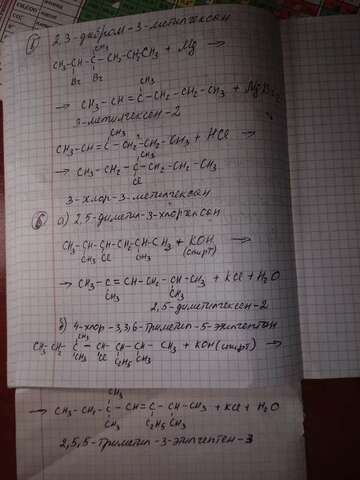 5) 2,3-дибром-3-метилгексан
CH3
CH3-CH-C-CH2-CH2CH3 + Mg →
Br Br
CH3
→ CH3-CH=C-CH2-CH2-CH3 + MgBr2
3-метилгексен-2
CH3
CH3-CH=C-CH2-CH2-CH3 + HCl →
CH3
→ CH3-CH2-C-CH2-CH2-CH3
Cl
3-хлор-3-метилгексан
6) а) 2,5-диметил-3-хлоргексан
CH3-CH-CH-CH2-CH-CH3 + KOH →
CH3 Cl CH3 (спирт)
→ CH3-C=CH-CH2-CH-CH3 + KCl + H2O
CH3 CH3
2,5-диметилгексен-2
б) 4-хлор-3,3,6-триметил-5-этилгептан
CH3
CH3-CH2-C-CH-CH-CH-CH3 + KOH (спирт) →
CH3 Cl C2H5 CH3
CH3
→ CH3-CH2-C-CH=C-CH-CH3 + KCl + H2O
CH3 C2H5 CH3
2,5,5-триметил-3-этилгептен-3